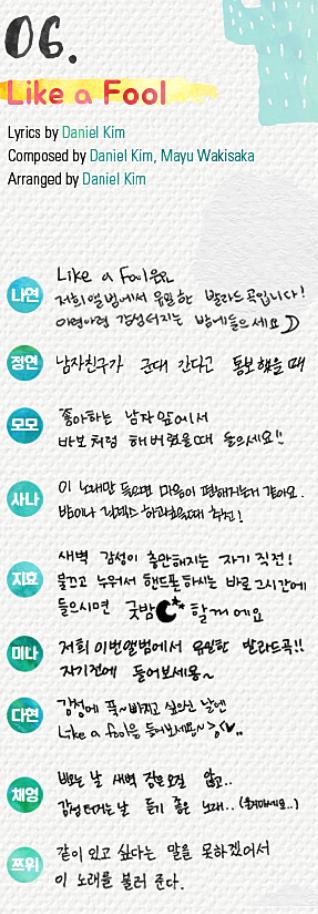 06.
Like a Fool
Lyrics by Daniel Kim
Composed by Daniel Kim, Mayu Wakisaka
Arranged by Daniel Kim
나연
Like a Fool은요
저희 앨범에서 유일한 발라드 곡입니다!
아련아련 감성터지는 밤에 들으세요
정연
남자친구가 군대 간다고 통보했을 때
모모
좋아하는 남자 앞에서
바보처럼 해버렸을때 들으세요!!
사나
이 노래만 들으면 마음이 편해지는거 같아요.
밤이나 릴렉스 하고싶을때 추천!
지효
새벽 감성이 충만해지는 자기 직전!
불끄고 누워서 핸드폰 하시는 바로 그시간에
들으시면 굿밤 할거에요
미나
저희 이번앨범에서 유일한 발라드곡!!
자기전에 들어보세용~
다현
감성에 푹~ 빠지고 싶으신 날엔
Like a fool을 들어보세요~
채영
비오는 날 새벽 잠은 오질 않고..
감성 터지는 날 듣기 좋은 노래..
쯔위
같이 있고 싶다는 말을 못하겠어서
이 노래를 불러 준다.